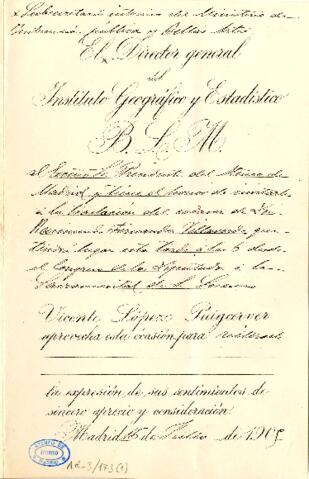 y Subsecretario interino del Ministerio de
Instrucción pública y Bellas Artes
El Director general
del
Instituto Geográfico y Estadístico
B. L. M.
al Excmo. Sr. Presidente del Ateneo de
Madrid y tiene el honor de invitarle
á la traslación del cadáver de Don
Raimundo Fernández Villaverde que
tendrá lugar esta tarde á las 6 desde
el Congreso de los Diputados á la
Sacramental de S. Lorenzo
Vicente López Puigcerver
aprovecha esta ocasión para reiterarle
la expresión de sus sentimientos de
sincero aprecio y consideración
Madrid 16 de Julio de 1905
ATENEO DE
MADRID
AR-3/173(1)